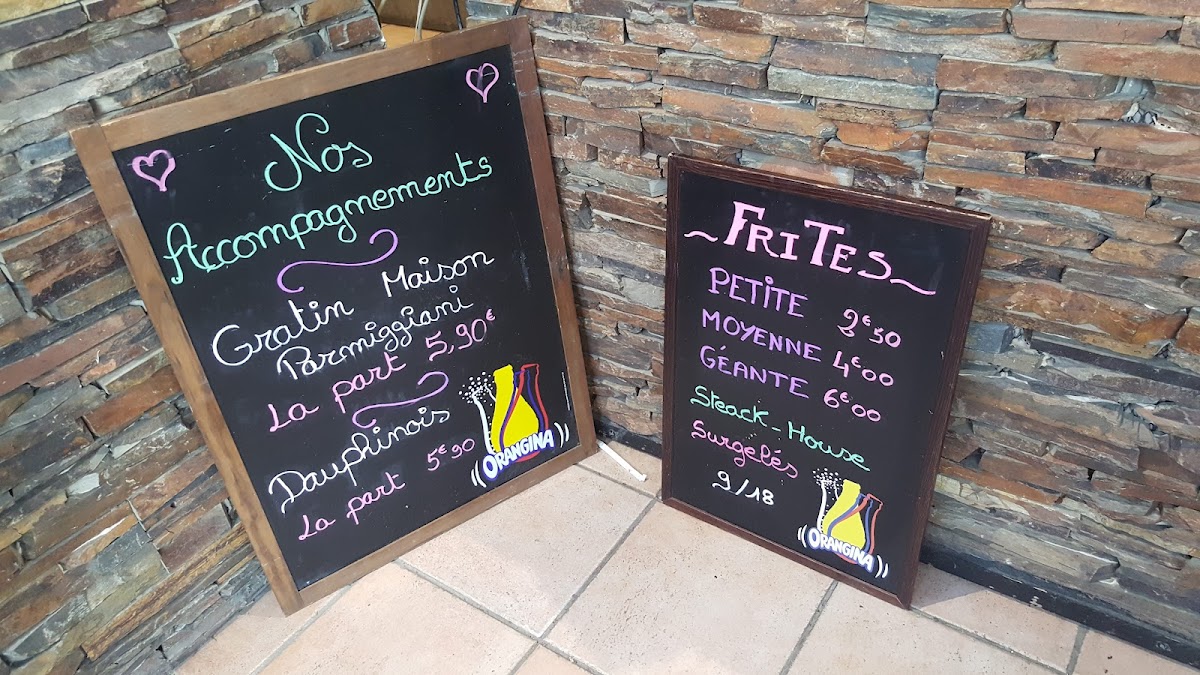 Nos
Accompagnements
Gratin Maison
Parmiggiani
La part 5,90€
Dauphinois
La part 5€90
ORANGINA
FRITES
PETITE 2€50
MOYENNE 4€00
GÉANTE 6€00
Steack-House
Surgelés
9/18
ORANGINA